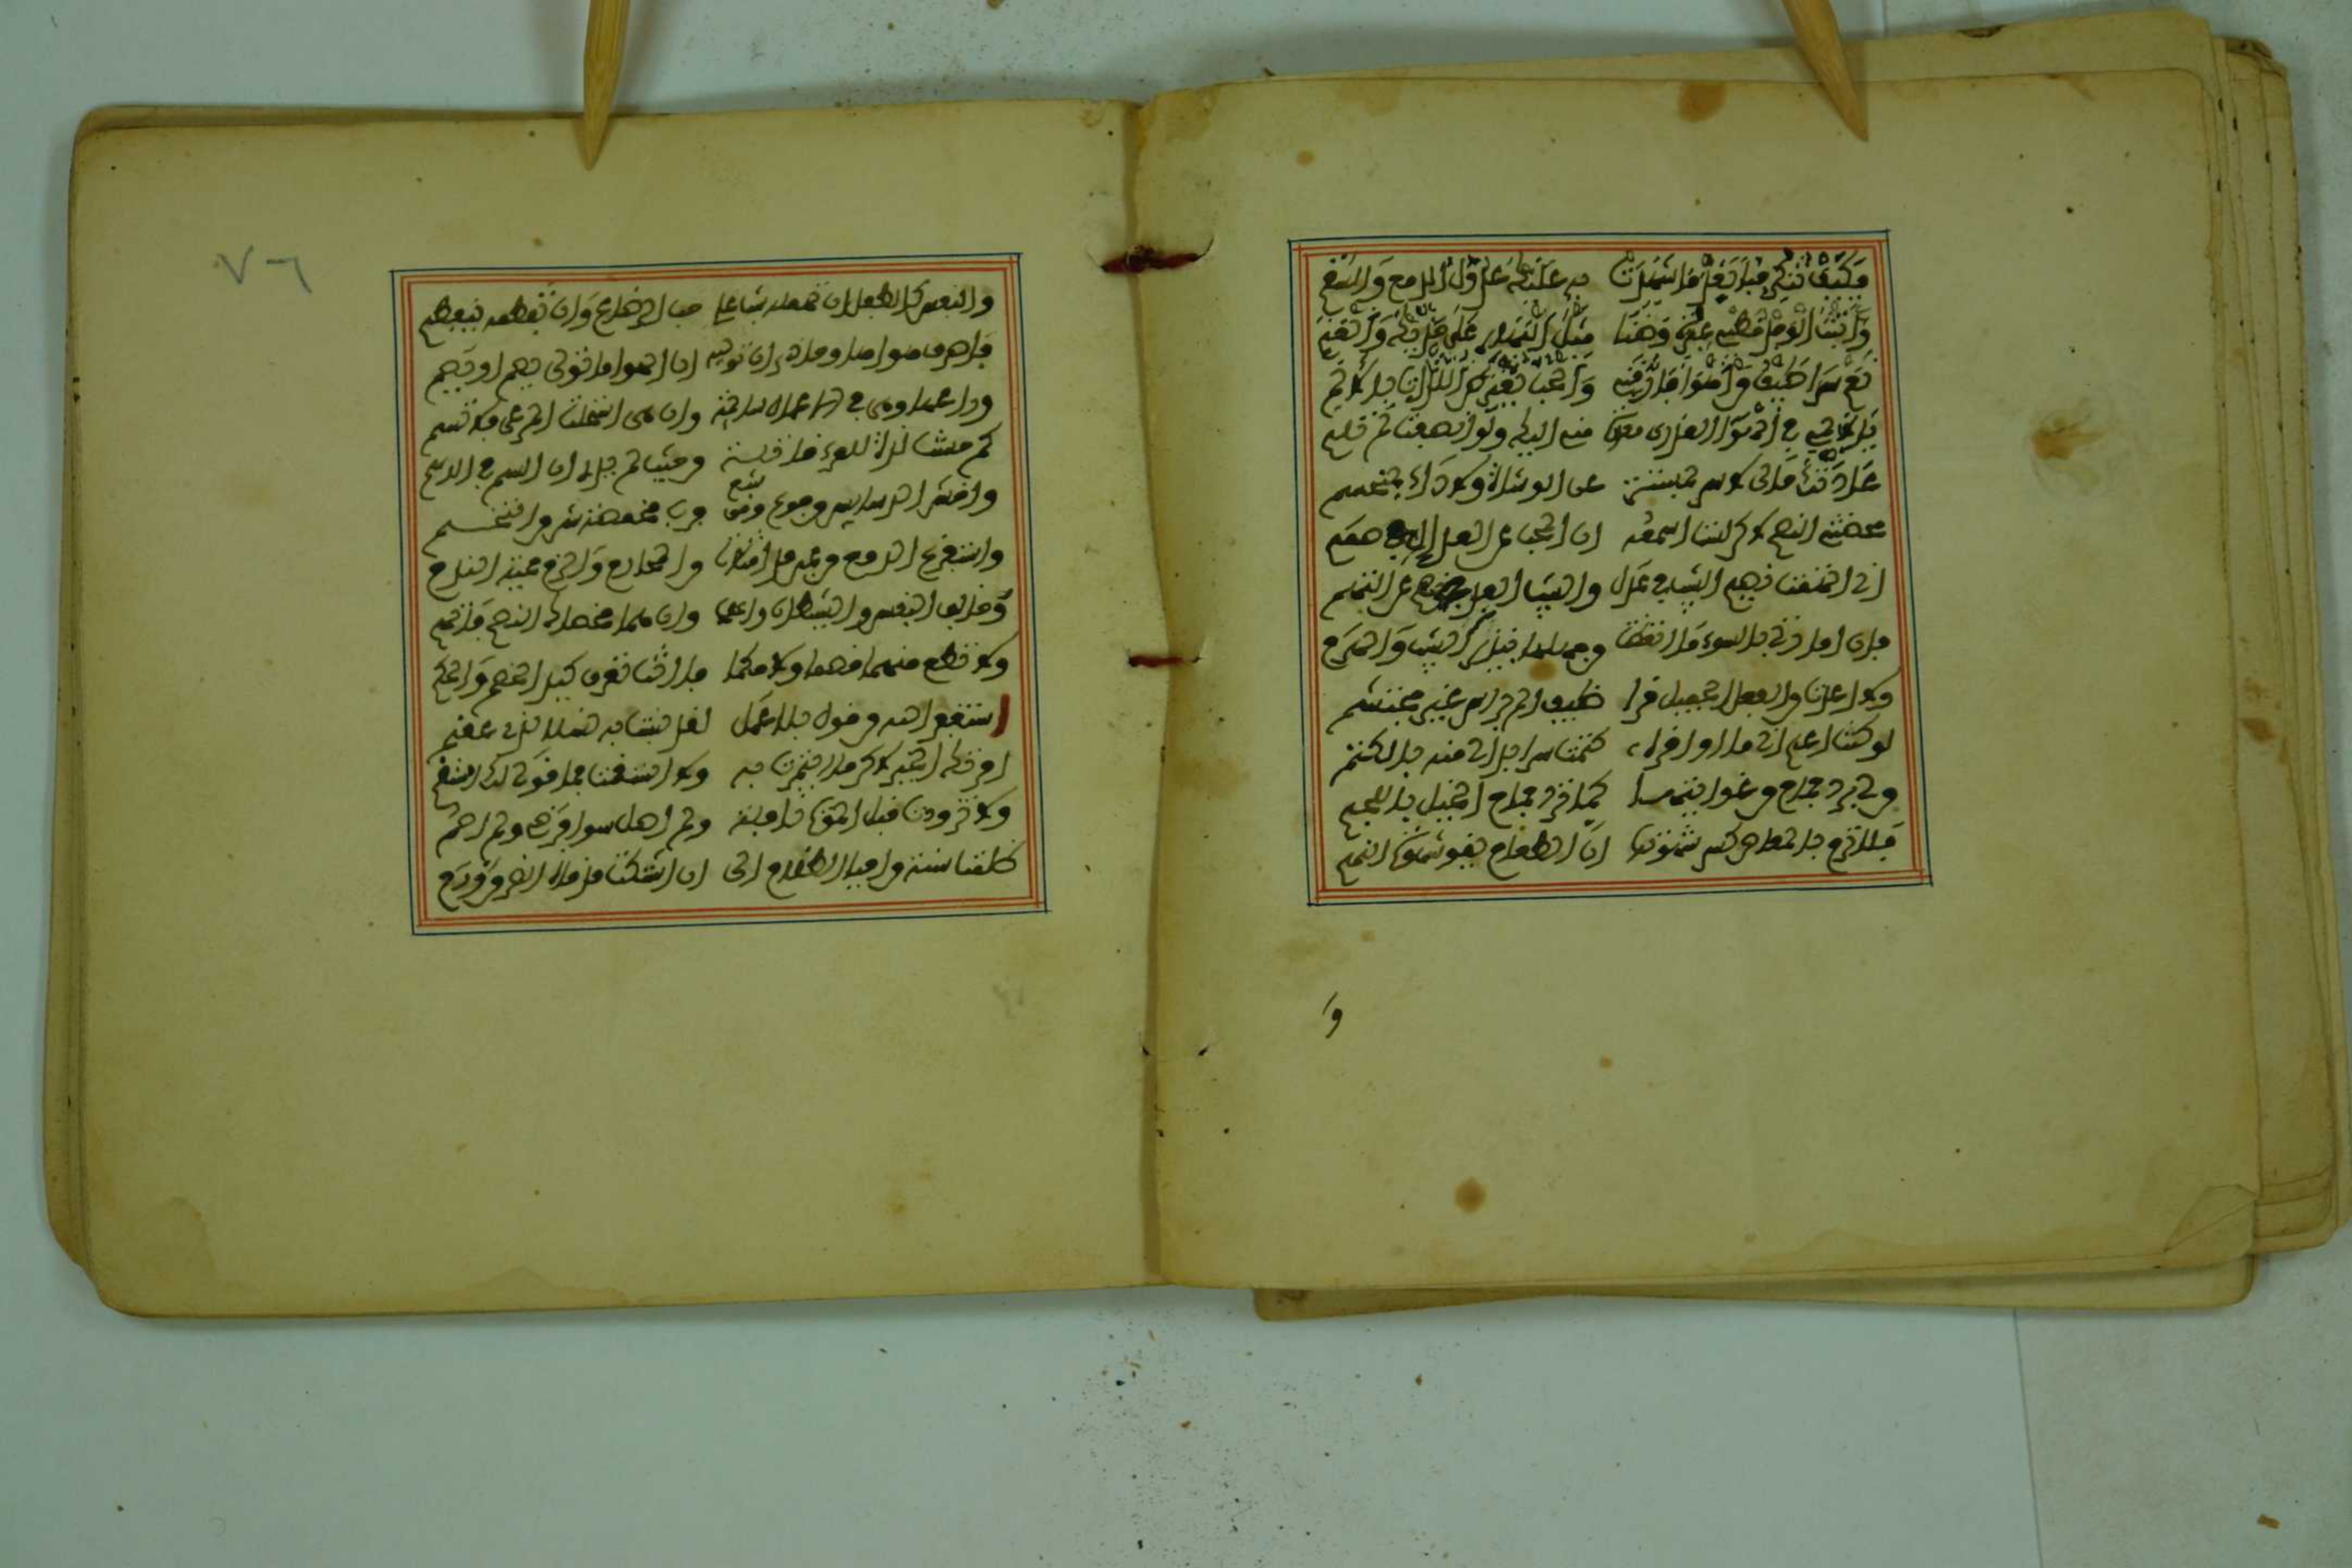 فكيف تنكر حبا بعد ما شهدت به عليك عدول الدمع والسقم
وأثبت الوجد خطي عبرة وضنا مثل البهار على خديك والعنم
نعم سرا طيف من أهوى فأرقني والحب يعترض اللذات بالألم
يا لائمي في الهوى العذري معذرة مني اليك ولو أنصفت لم تلم
عدتك حالي لا سري بمستتر عن الوشاة ولا دائي بمنحسم
محضتني النصح لكن لست اسمعه ان المحب عن العذال في صمم
اني اتهمت نصيح الشيب في عذل والشيب ابعد في نصح عن التهم
فان امارتي بالسوء ما اتعظت من جهلها بنذير الشيب والهرم
ولا اعدت من الفعل الجميل قرا ضيف الم براسي غير محتشم
لو كنت اعلم اني ما اوقره كتمت سرا بدا لي منه بالكتم
من لي برد جماح من غوايتها كما يرد جماح الخيل باللجم
فلا ترم بالمعاصي كسر شهوتها ان الطعام يقوي شهوة النهم
و
٧٦
والنفس كالطفل ان تهمله شب على حب الرضاع وان تفطمه ينفطم
فاصرف هواها وحاذر ان توليه ان الهوا ما تولى يصم او يصم
وراعها وهي في الاعمال سائمة وان هي استحلت المرعى فلا تسم
كم حسنت لذة للمرء قاتلة من حيث لم يدر ان السم في الدسم
واخش الدسايس من جوع ومن شبع فرب مخمصة شر من التخم
واستفرغ الدمع من عين قد امتلات من المحارم والزم حمية الندم
وخالف النفس والشيطان واعصهما وان هما محضاك النصح فاتهم
ولا تطع منهما خصما ولا حكما فانت تعرف كيد الخصم والحكم
استغفر الله من قول بلا عمل لقد نسبت به نسلا لذي عقم
امرتك الخير لكن ما ائتمرت به وما استقمت فما قولي لك استقم
ولا تزودت قبل الموت نافلة ولم اصل سوى فرض ولم اصم
ظلمت سنة من احيا الظلام الى ان اشتكت قدماه الضر من ورم